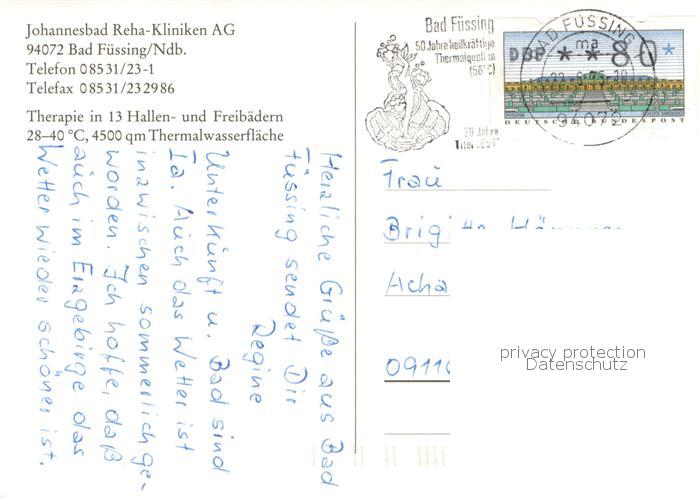 Johannesbad Reha-Kliniken AG
94072 Bad Füssing/Ndb.
Telefon 08531/23-1
Telefax 08531/232986
Therapie in 13 Hallen- und Freibädern
28–40 °C, 4500 qm Thermalwasserfläche
Herzliche Grüße aus Bad
Füssing sendet Dir
Regine
Unterkunft u. Bad sind
Ia. Auch das Wetter ist
inzwischen sommerlich ge-
worden. Ich hoffe, daß
auch im Erzgebirge das
Wetter wieder schöner ist.
Bad Füssing
50 Jahre heilkräftige
Thermalquellen
(56°C)
20 Jahre
Titel „Bad“
BAD FÜSSING
ma
94072
DBP * * 80 *
DEUTSCHE BUNDESPOST
Frau
Acha
0911
privacy protection
Datenschutz